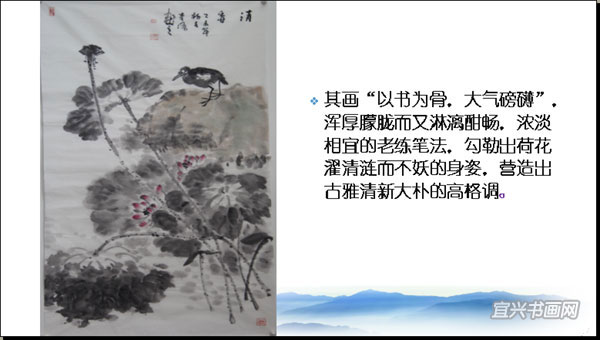 清
其画“以书为骨，大气磅礴”，
浑厚朦胧而又淋漓酣畅，浓淡
相宜的老练笔法，勾勒出荷花
濯清涟而不妖的身姿，营造出
古雅清新大朴的高格调。
宜兴书画网